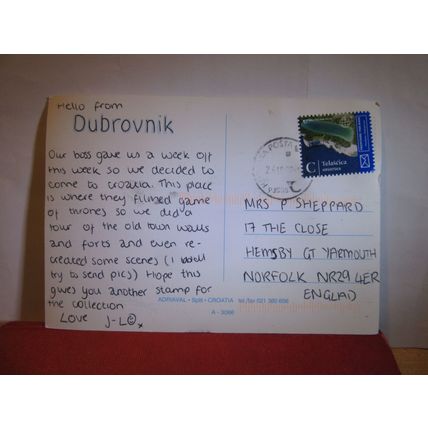 Hello from
Dubrovnik
Our boss gave us a week off
this week so we decided to
come to Croatia. This place
is where they filmed game
of thrones so we did a
tour of the old town walls
and forts and even re-
created some scenes (I will
try to send pics) Hope this
gives you another stamp for
the collection
Love J-L
x
ADRIAVAL • Split • CROATIA tel./fax 021 380 656
A - 3066
Telašćica
C
MRS P SHEPPARD
17 THE CLOSE
HEMSBY GT YARMOUTH
NORFOLK NR29 4ER
ENGLAD